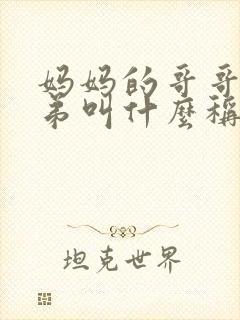 妈妈的哥哥
弟叫什麼稱
坦克世界